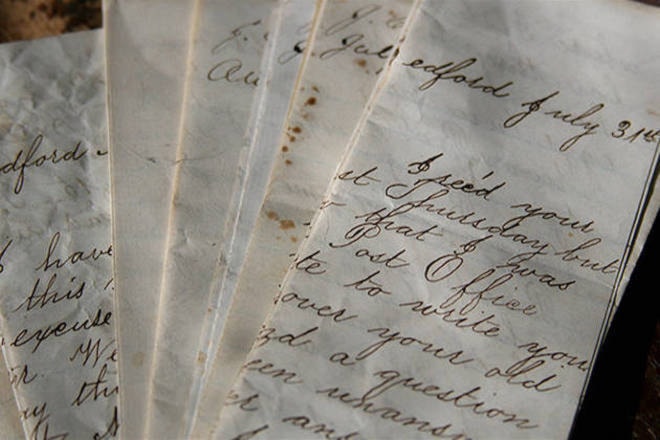 dford
have
this
excuse
We
J.
Au
J.
Jul
edford July 31st
I rec'd your
st Thursday but
that I was
Post Office
te to write you
over your old
d a question
een unansw
er an